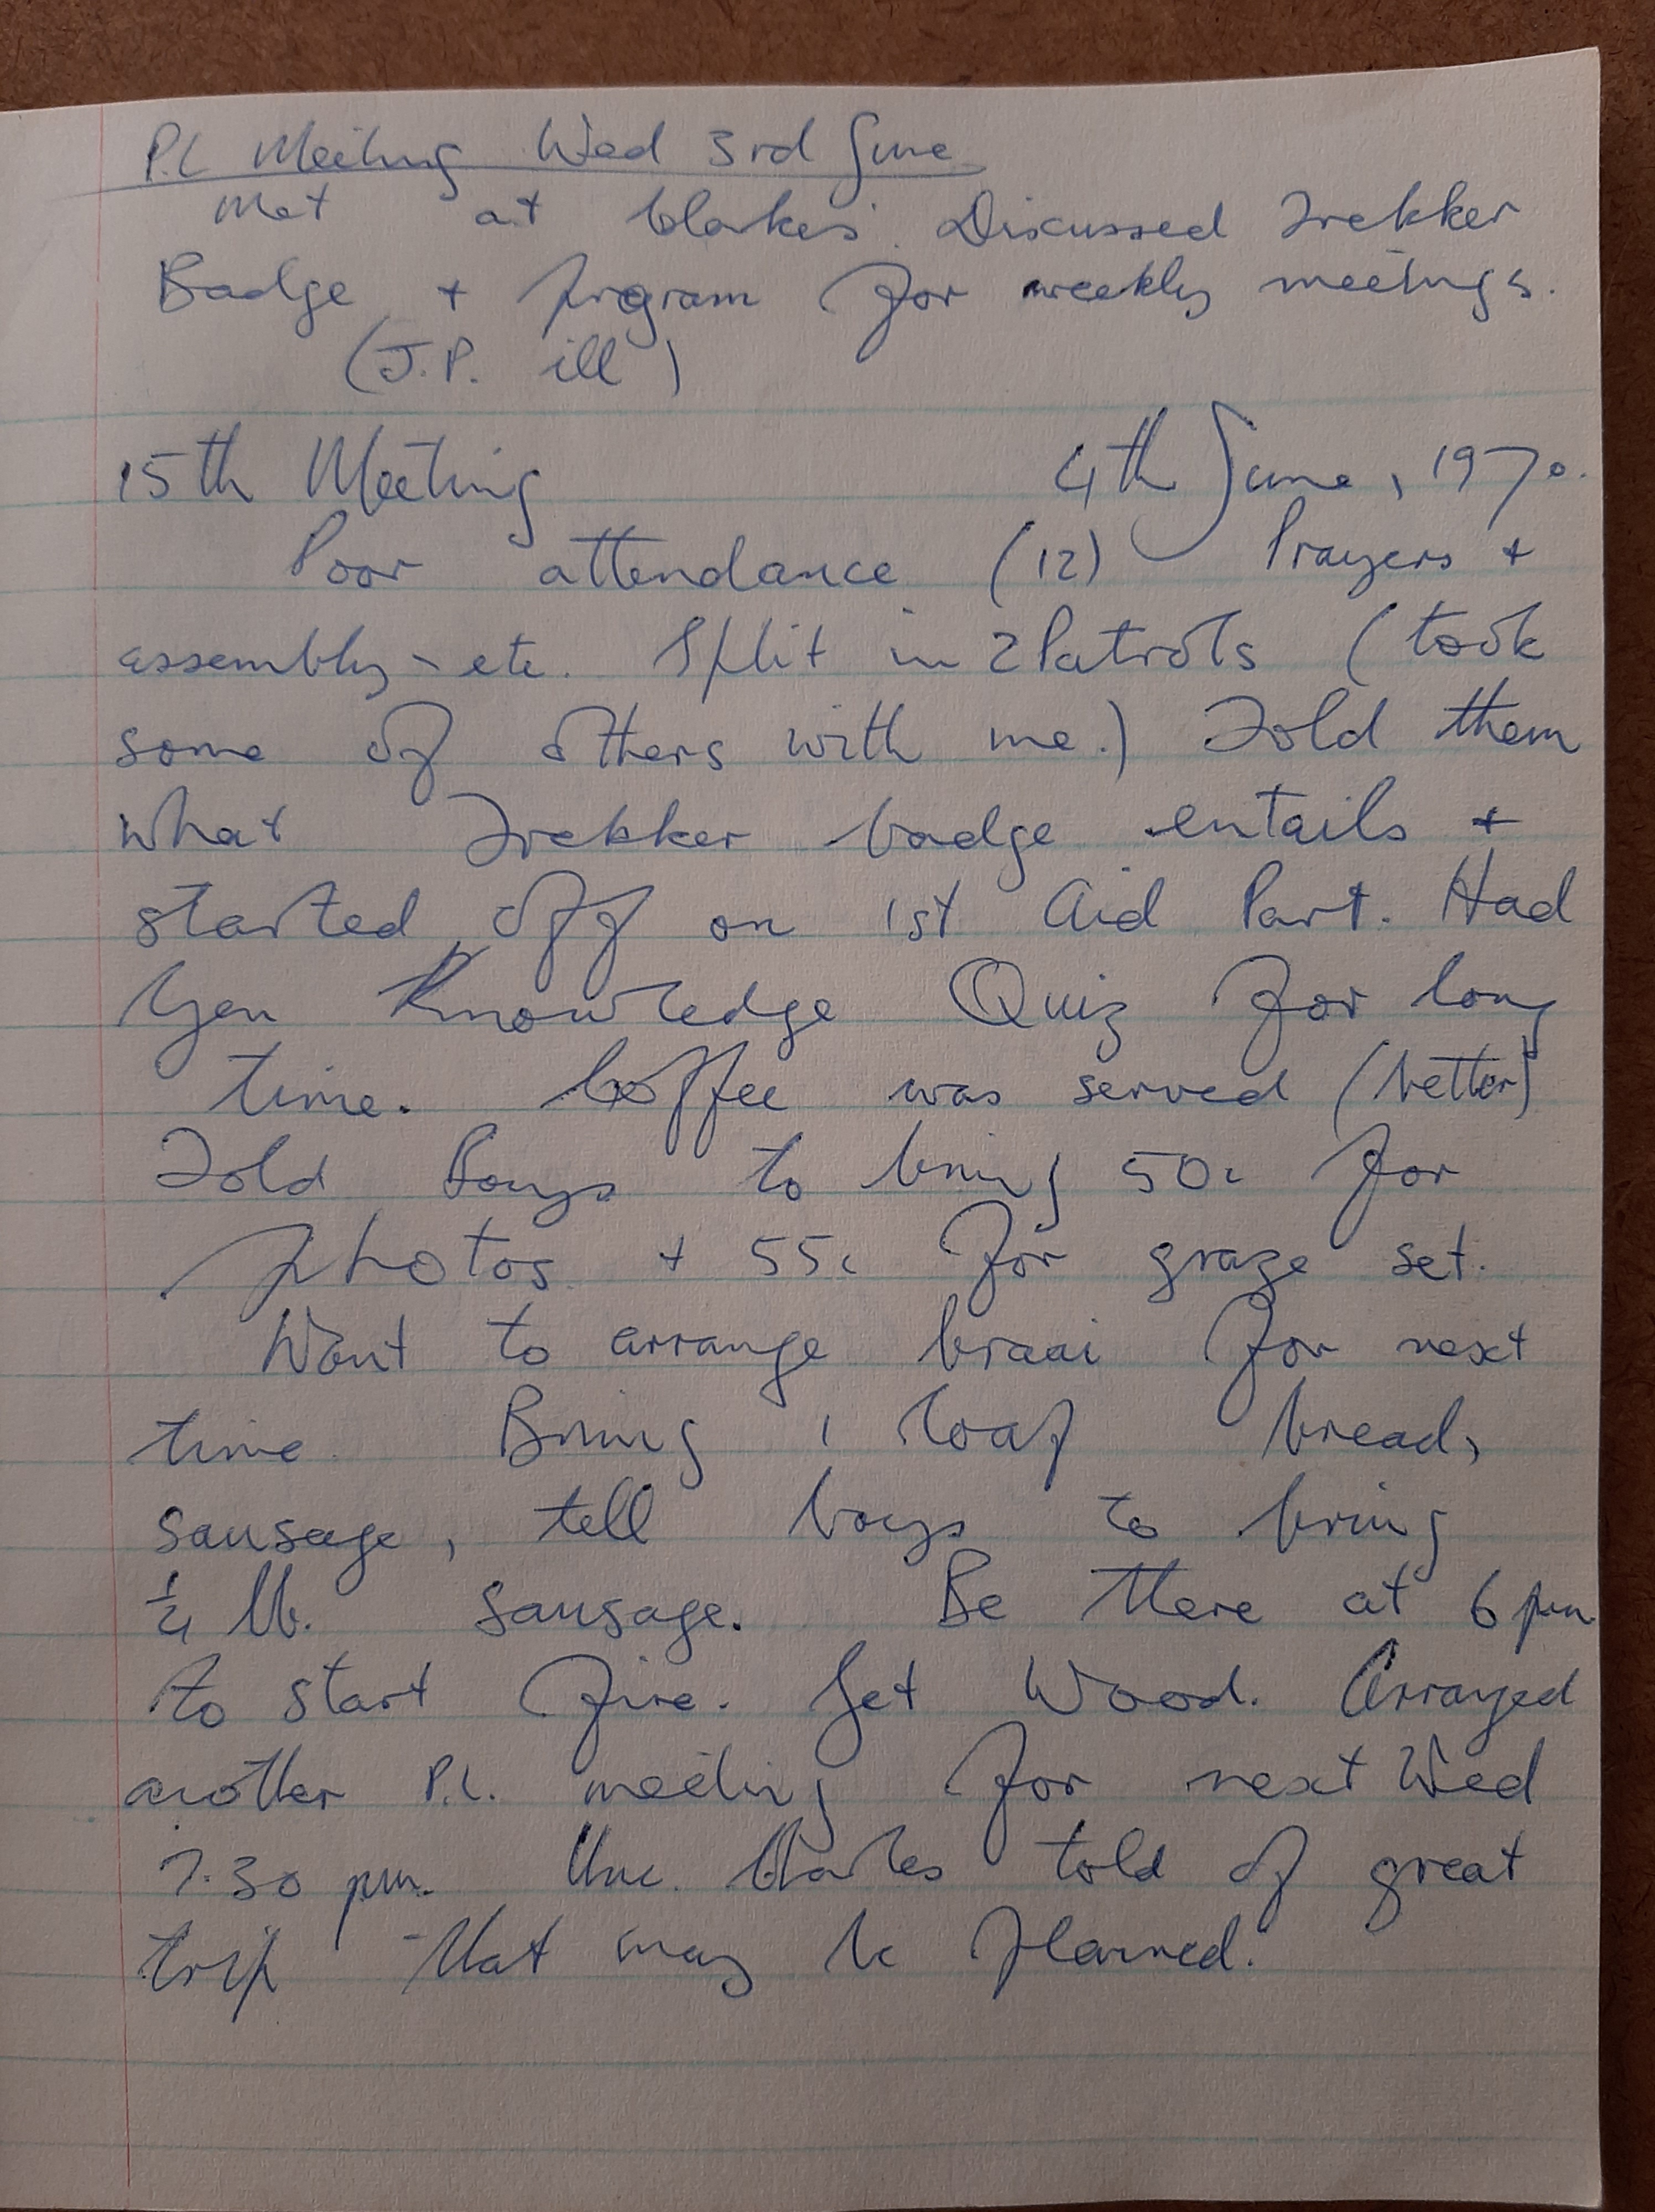 P.L Meeting Wed 3rd June
Met at Clarkes. Discussed Trekker
Badge + program for weekly meetings.
(J.P. ill)
15th Meeting 4th June, 1970.
Poor attendance (12) Prayers +
assembly - etc. Split in 2 Patrols (took
some of others with me.) Told them
what Trekker badge entails +
started off on 1st Aid Part. Had
Gen Knowledge Quiz for long
time. Coffee was served (better)
Told Boys to bring 50c for
photos + 55c for graze set.
Want to arrange braai for next
time. Bring 1 loaf bread,
sausage, tell boys to bring
½ lb. sausage. Be there at 6 pm
to start fire. Get Wood. Arranged
another P.L. meeting for next Wed
7.30 pm. Unc. told of great
trip that may be planned.